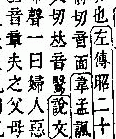 也左傳昭二十
切音面韋孟諷
切𠀤音說文
聲一曰婦人惡
音章夫之父母